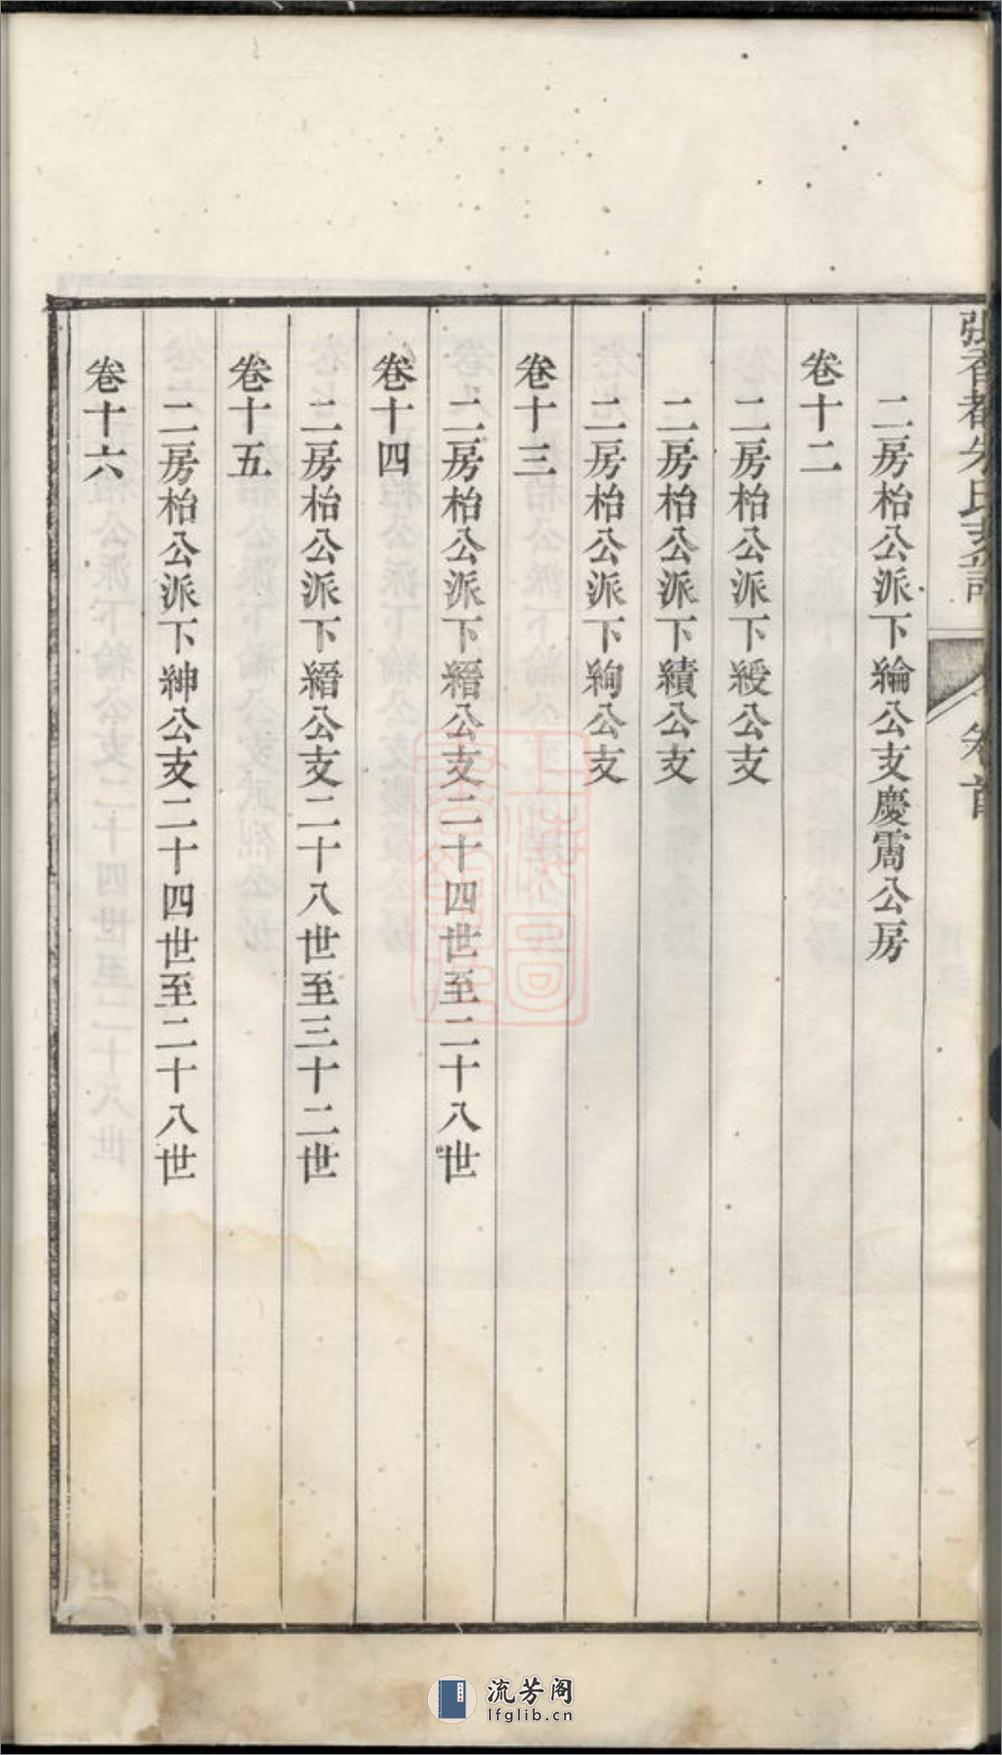 張香都朱氏支譜
卷首
二房枱公派下綸公支慶霱公房
卷十二
二房枱公派下綬公支
二房枱公派下績公支
二房枱公派下絢公支
卷十三
二房枱公派下縉公支二十四世至二十八世
卷十四
二房枱公派下縉公支二十八世至三十二世
卷十五
二房枱公派下紳公支二十四世至二十八世
卷十六
上海圖書館藏
流芳阁
lfglib.cn